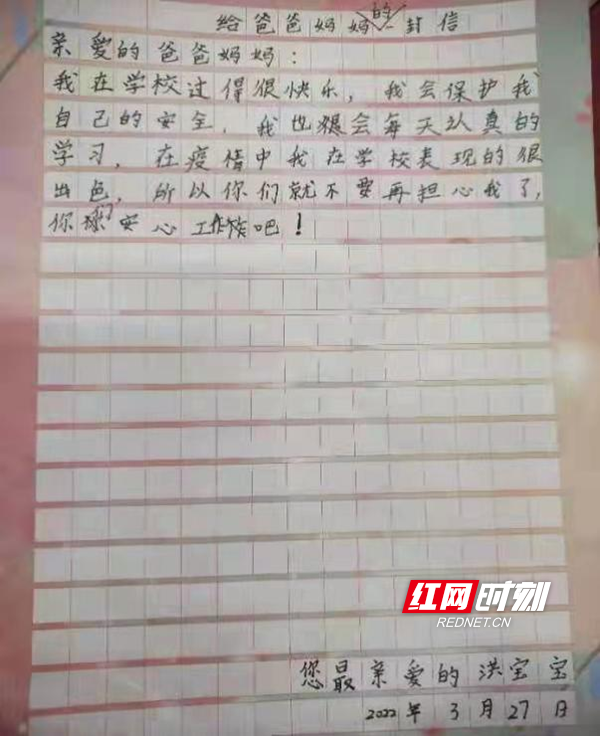 给爸爸妈妈的一封信
亲爱的爸爸妈妈：
我在学校过得很快乐，我会保护我
自己的安全，我也狠会每天认真的
学习，在疫情中我在学校表现的很
出色，所以你们就不要再担心我了，
你们安心工作吧！
红网时刻
REDNET.CN
您最亲爱的洪宝宝
2022年3月27日